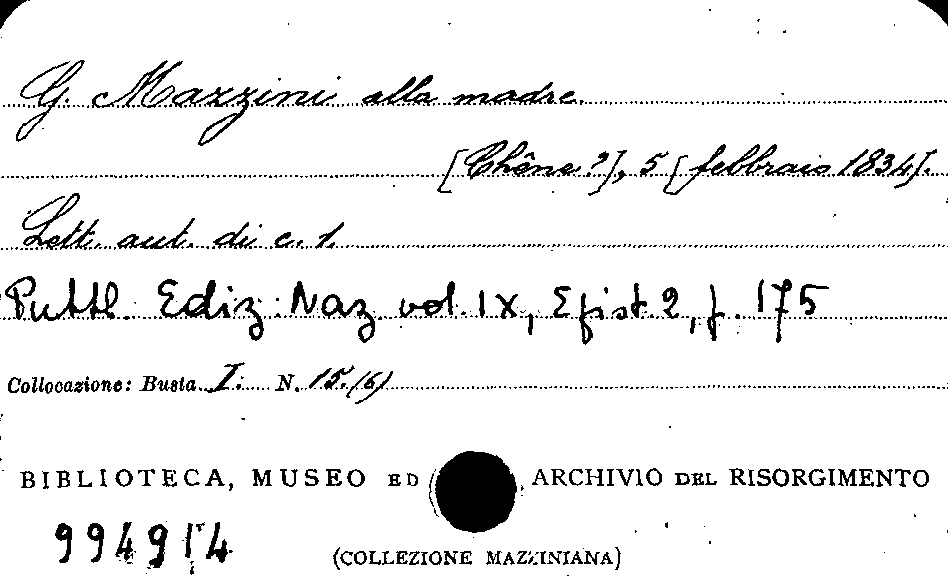 G. Mazzini alla madre.
[Chêne?], 5 [febbraio 1834].
Lett. aut. di c. 1.
Pubbl. Ediz. Naz. vol. IX, Epist. 2, p. 175
Collocazione: Busta I. N. 15.(6)
BIBLIOTECA, MUSEO ED ARCHIVIO DEL RISORGIMENTO
99491/4
(COLLEZIONE MAZZINIANA)